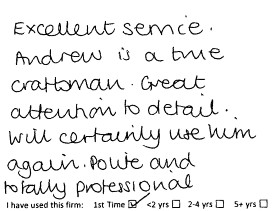 Excellent service.
Andrew is a true
craftsman. Great
attention to detail.
Will certainly use him
again. Polite and
totally professional
I have used this firm: 1st Time ☑ <2 yrs ☐ 2-4 yrs ☐ 5+ yrs ☐